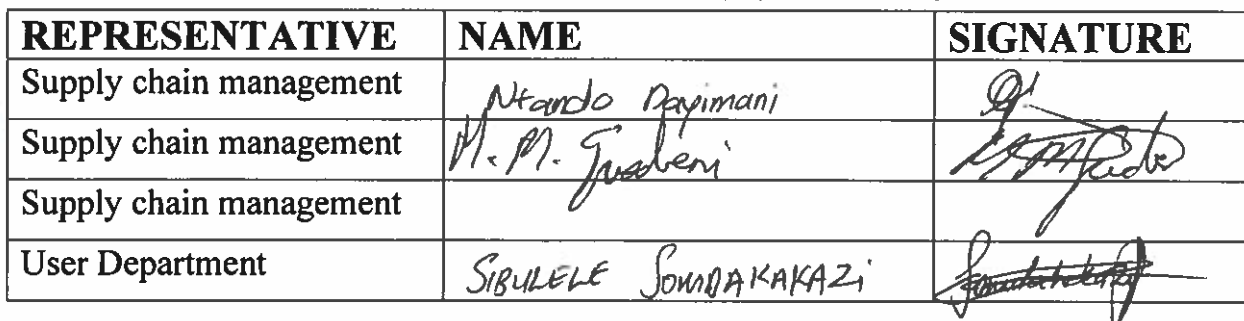 REPRESENTATIVE NAME SIGNATURE
Supply chain management Ntando Dayimani
Supply chain management M. M.
Supply chain management
User Department SIBULELE